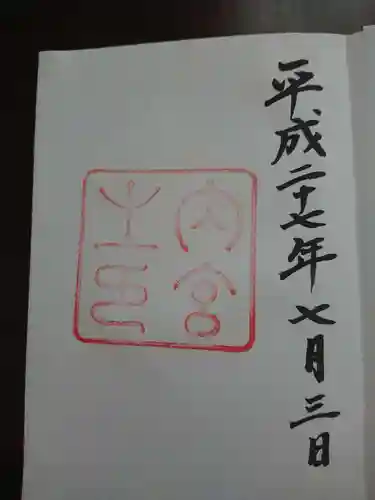 平成二十七年七月三日
内宮之印